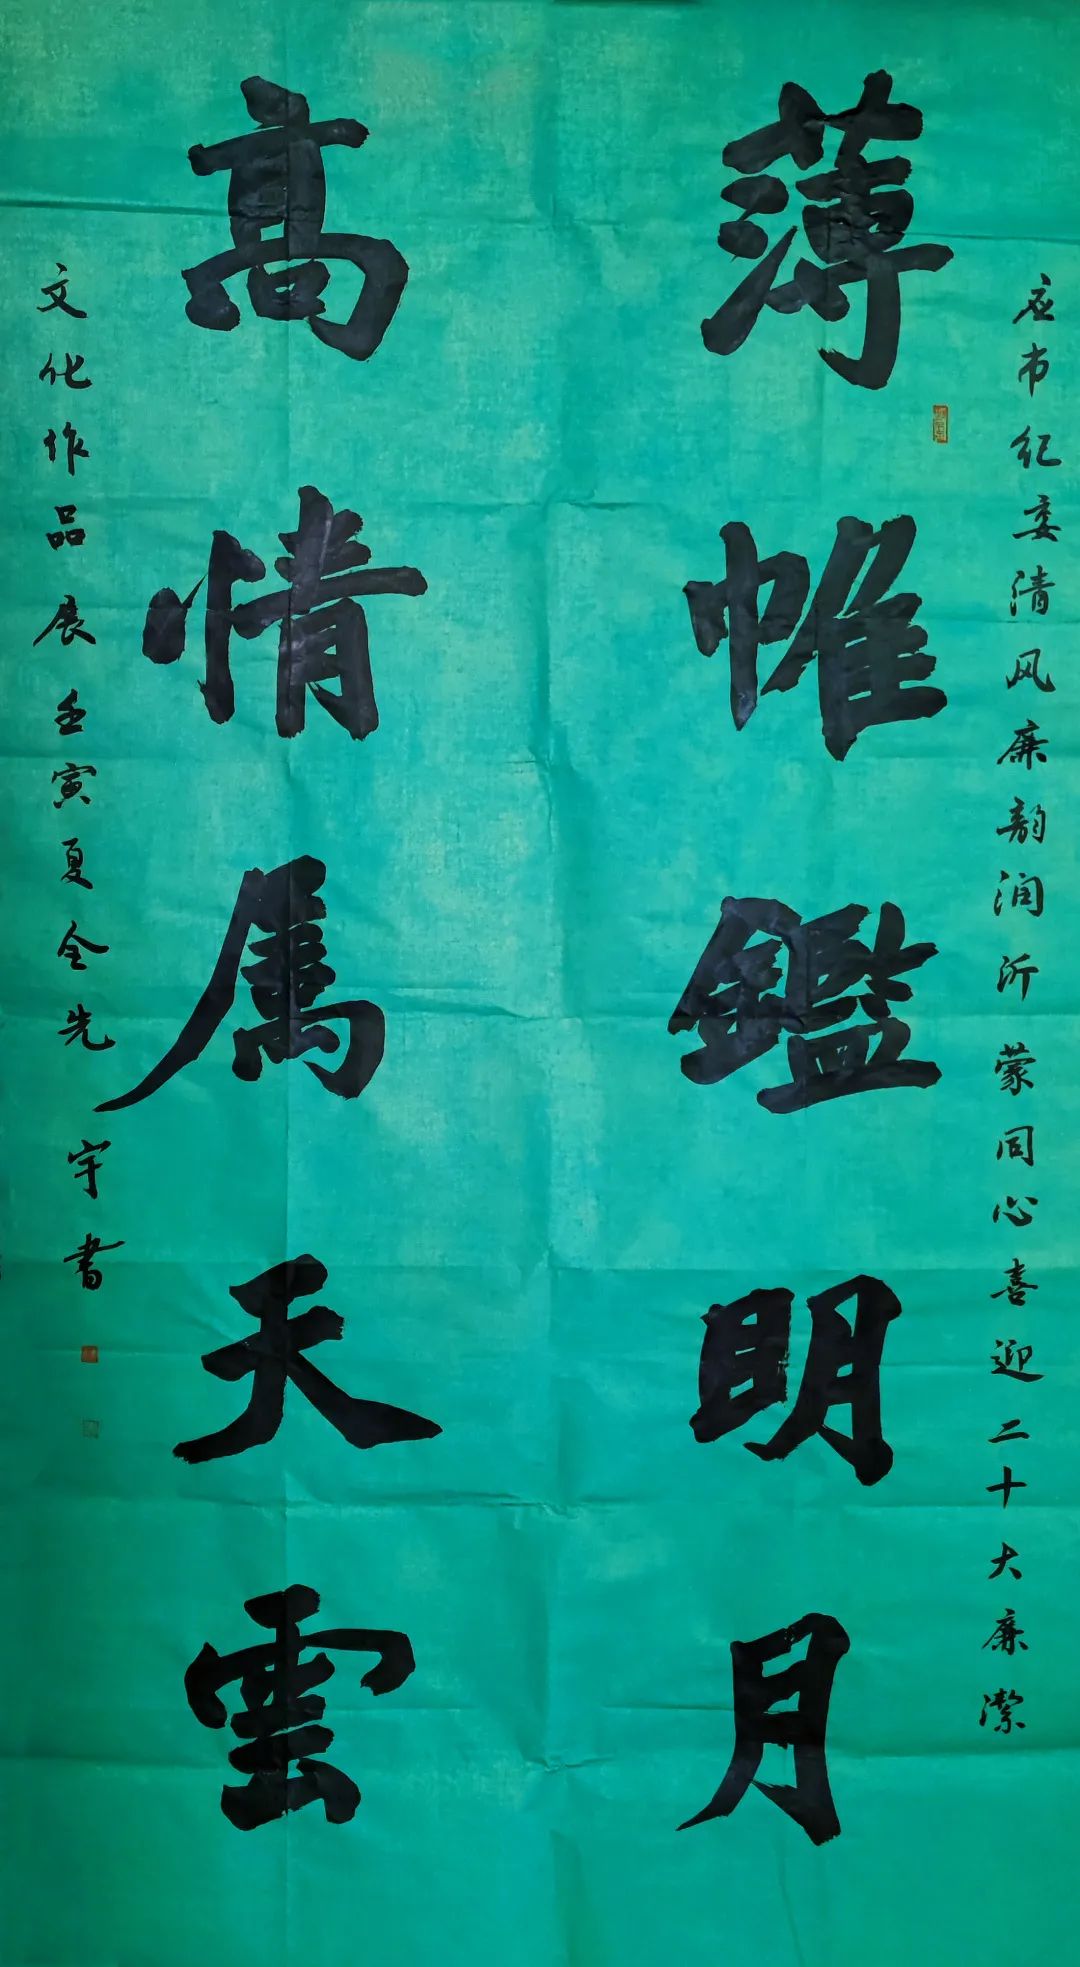 应市纪委清风廉韵润沂蒙同心喜迎二十大廉潔
薄帷鑑明月
高情属天雲
文化作品展壬寅夏全先宇书